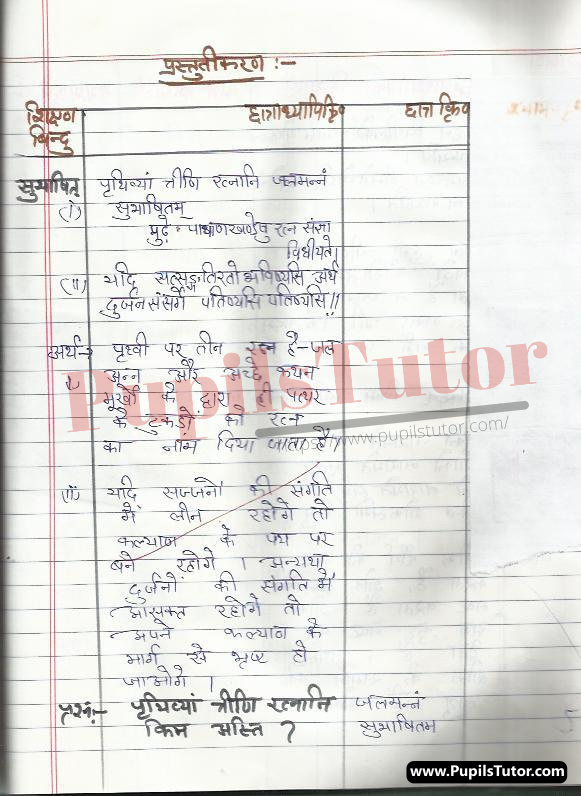 प्रस्तुतीकरण :-
शिक्षण
बिन्दु
छात्राध्यापिका क्रि०
छात्र क्रि०
सुभाषित पृथिव्यां त्रीणि रत्नानि जलमन्नं
(i) सुभाषितम्
मुढ़ै पाषाणखण्डेषु रत्न संज्ञा
विधीयते।
(ii) यदि सत्सङ्गतिरतो भविष्यसि
दुर्जनसंसर्गे पतिष्यसि पतिष्यसि।।
अर्थ→ पृथ्वी पर तीन रत्न है - जल
i अन्न और अच्छे कथन
मूर्खों के द्वारा ही पत्थर
के टुकड़ों को रत्न
का नाम दिया जाता है।
(ii) यदि सज्जनों की संगति
में लीन रहोगे तो
कल्याण के पथ पर
बने रहोगे। अन्यथा
दुर्जनों की संगति में
आसक्त रहोगे तो
अपने कल्याण के
मार्ग से भ्रष्ट हो
जाओगे।
प्रश्न:- पृथिव्यां त्रीणि रत्नानि जलमन्नं
किम अस्ति ? सुभाषितम
PupilsTutor
https://www.pupilstutor.com/
www.PupilsTutor.com